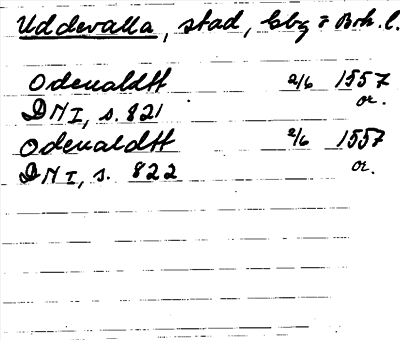 Uddevalla, stad, Gbg o Boh. l.
Odenaldtt 2/6 1557
DN I, s. 821 or.
Odenaldtt 2/6 1557
DN I, s. 822 or.